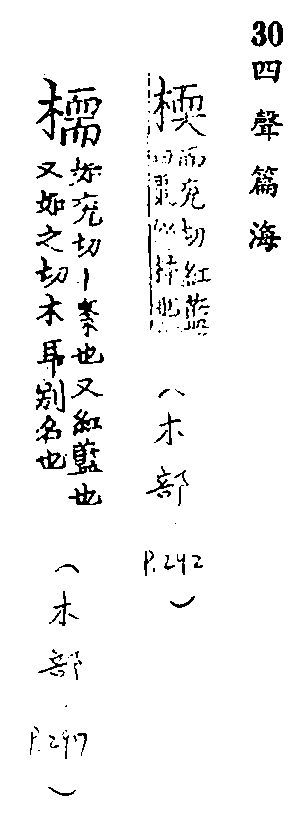 30四聲篇海
㮕而兗切紅藍
也棗似柿也
（木部 P.242）
檽如兗切丨棗也又紅藍也
又如之切木耳別名也
（木部 P.297）